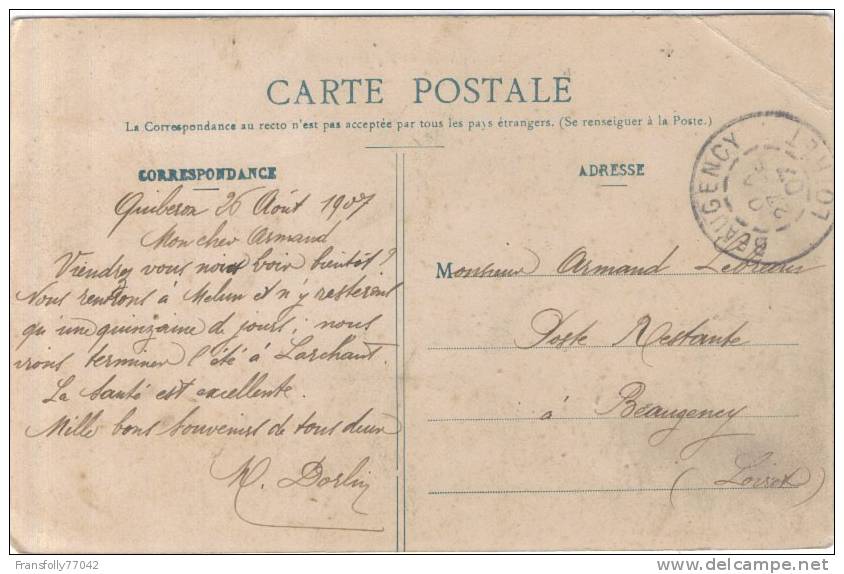 CARTE POSTALE
La Correspondance au recto n'est pas acceptée par tous les pays étrangers. (Se renseigner à la Poste.)
CORRESPONDANCE
Quiberon 26 Août 1907
Mon cher Armand
Viendrez vous nous voir bientôt?
Nous rentrons à Melun et n'y resterons
qu'une quinzaine de jours; nous
irons terminer l'été à Larchant.
La santé est excellente.
Mille bons souvenirs de tous deux
M. Dorlin
ADRESSE
Monsieur Armand
Poste Restante
à Beaugency
(Loiret)
BEAUGENCY
LOIRET
Fransfolly77042
delcampe.net